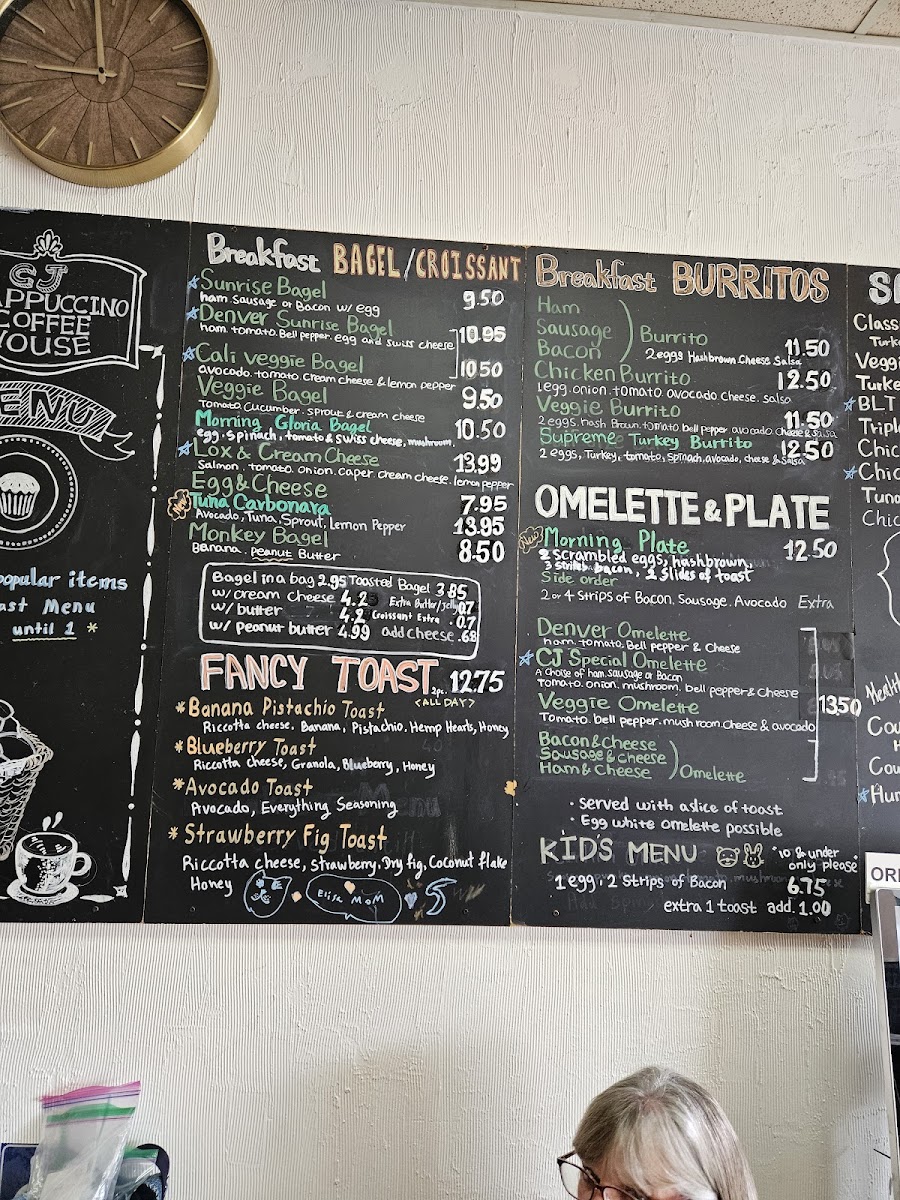 CJ
APPUCCINO
COFFEE
HOUSE
MENU
popular items
ast Menu
until 1 *
Breakfast BAGEL/CROISSANT
Sunrise Bagel 9.50
ham. Sausage or Bacon w/ egg
Denver Sunrise Bagel 10.95
ham. tomato. Bell pepper. egg and swiss cheese
Cali veggie Bagel 10.50
avocado. tomato. cream cheese & lemon pepper
Veggie Bagel 9.50
Tomato. Cucumber. sprout & cream cheese
Morning Gloria Bagel 10.50
egg. spinach, tomato & swiss cheese, mushroom.
Lox & Cream Cheese 13.99
Salmon. tomato. onion. caper. cream cheese. lemon pepper
Egg & Cheese 7.95
New Tuna Carbonara 13.95
Avocado, Tuna, Sprout, Lemon Pepper
Monkey Bagel 8.50
Banana. Peanut Butter
Bagel in a bag 2.95 Toasted Bagel 3.85
w/ cream cheese 4.2 Extra Butter/Jelly 0.7
w/ butter 4.2 Croissant Extra .0.7
w/ peanut butter 4.99 add cheese .68
FANCY TOAST 2pc. 12.75
<ALL DAY>
*Banana Pistachio Toast
Riccotta cheese. Banana, Pistachio, Hemp Hearts, Honey
*Blueberry Toast
Riccotta cheese, Granola, Blueberry, Honey
*Avocado Toast
Avocado, Everything Seasoning
* Strawberry Fig Toast
Riccotta cheese, Strawberry, Dry fig, Coconut flake
Honey
Elise MoM
Breakfast BURRITOS
Ham
Sausage
Bacon
Burrito 11.50
2 eggs Hashbrown. Cheese. Salsa
Chicken Burrito 12.50
1 egg. onion. tomato. avocado cheese. salsa
Veggie Burrito 11.50
2 eggs. hash Brown. tomato. bell pepper. avocado. cheese & salsa
Supreme Turkey Burrito 12.50
2 eggs, Turkey, tomato, Spinach, avocado, cheese & Salsa
OMELETTE & PLATE
New Morning Plate 12.50
2 scrambled eggs, hashbrown,
3 strips bacon, 2 slides of toast
Side order
2 or 4 strips of Bacon. Sausage. Avocado Extra
Denver Omelette
ham. tomato. Bell pepper & Cheese
CJ Special Omelette
A choise of ham. sausage or Bacon
Tomato. onion. mushroom. bell pepper & Cheese
Veggie Omelette 13.50
Tomato. bell pepper. mushroom. cheese & avocado
Bacon & Cheese
Sausage & Cheese
Ham & Cheese Omelette
• served with a slice of toast
• Egg white omelette possible
KIDS MENU "10 & under
only please"
1 egg, 2 Strips of Bacon 6.75
extra 1 toast add 1.00
Class
Turk
Veggi
Turke
BLT
Tripl
Chic
Chic
Tuna
Chic
Cou
Cou
Hum
ORD